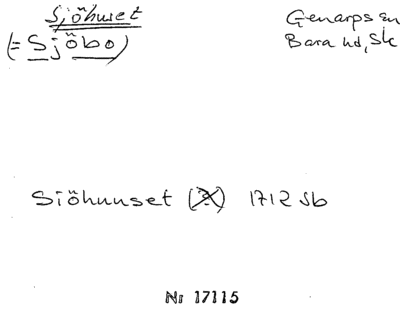 Sjöhuset
(= Sjöbo)
Genarps sn
Bara hd, Sk
Siöhuuset (2) 1712 Jb
Nr 17115